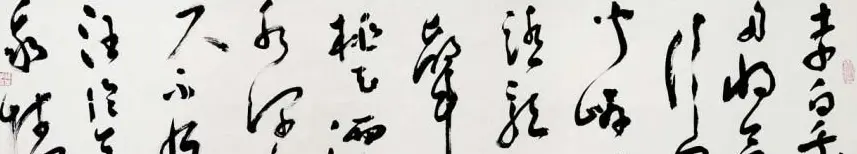 李白乘
舟将欲
行忽
闻岸
踏歌
声
桃花潭
水深
尺不及
汪伦送
我情